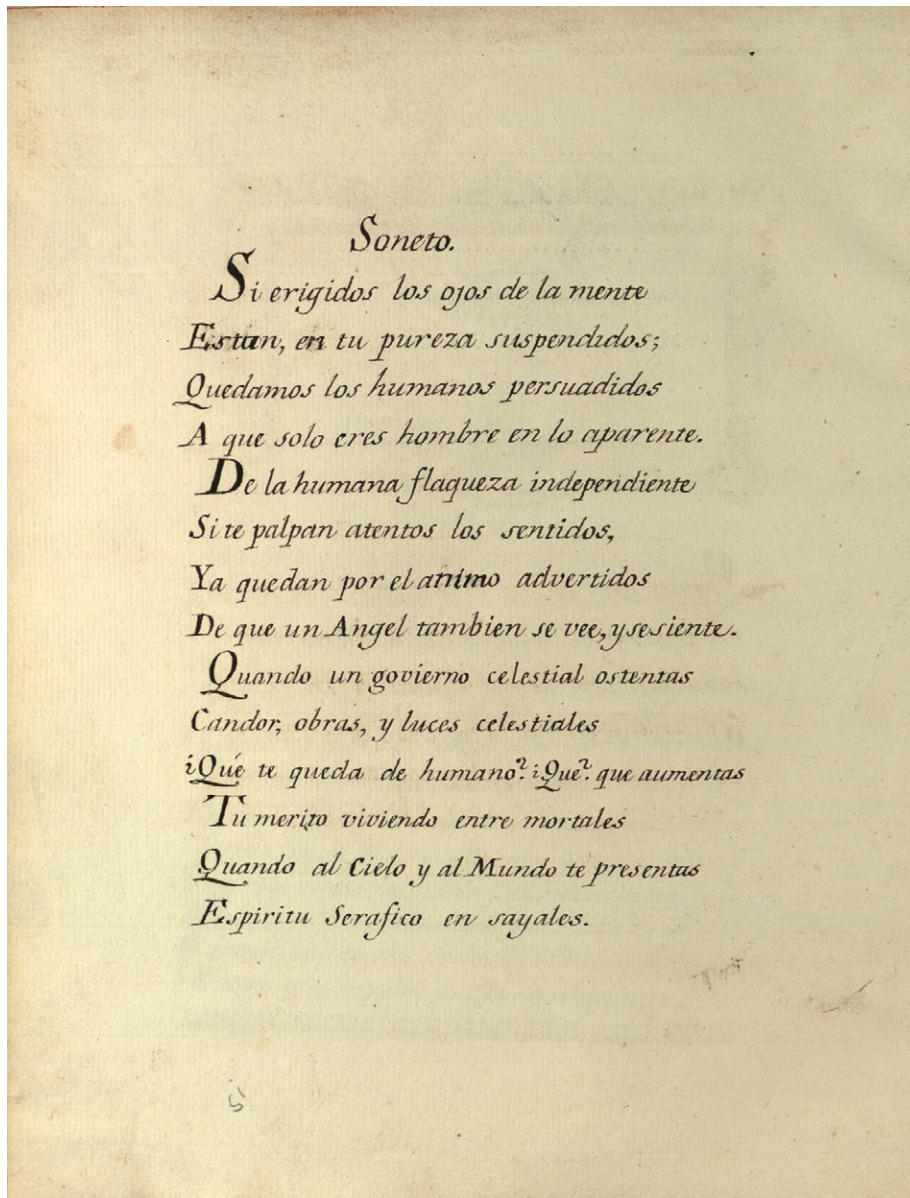 Soneto.
Si erigidos los ojos de la mente
Estan, en tu pureza suspendidos;
Quedamos los humanos persuadidos
A que solo eres hombre en lo aparente.
De la humana flaqueza independiente
Si te palpan atentos los sentidos,
Ya quedan por el animo advertidos
De que un Angel tambien se vee, y se siente.
Quando un govierno celestial ostentas
Candor, obras, y luces celestiales
¿Qué te queda de humano? ¿Que? que aumentas
Tu merito viviendo entre mortales
Quando al Cielo y al Mundo te presentas
Espiritu Serafico en sayales.